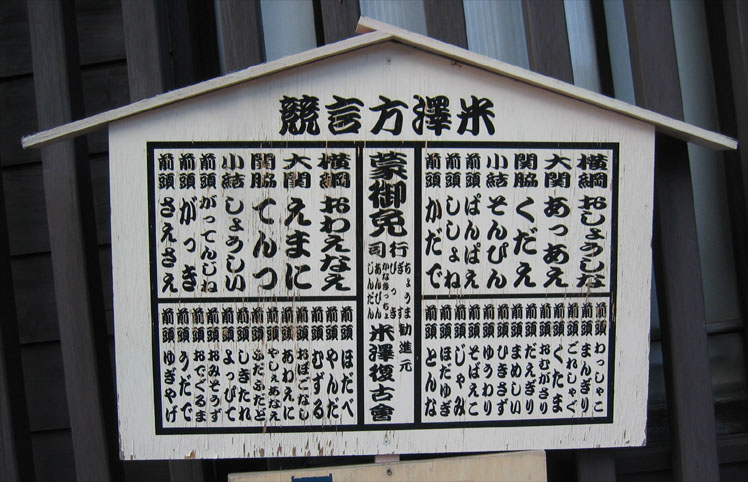 米澤方言競
横綱 おしょうしな
大関 あっあえ
関脇 くだえ
小結 そんぴん
前頭 ぱんぱえ
前頭 ししょね
前頭 かだで
前頭 わっしゃこ
前頭 まんぎり
前頭 ごれしゃぐ
前頭 くたま
前頭 おむがさり
前頭 だえぎり
前頭 まめしい
前頭 ひきさず
前頭 ゆうわり
前頭 そばえこ
前頭 じゃみ
前頭 ほだゆぎ
前頭 とんな
蒙御免
行司
ちょうます
ぎっき
びっき
かなちょっちょ
あんぴん
じんだん
勧進元
米澤復古會
横綱 おわえなえ
大関 えまに
関脇 てんつ
小結 しょうしい
前頭 がってんじね
前頭 がっき
前頭 さえさえ
前頭 ほだべ
前頭 やんだ
前頭 むずる
前頭 おぼごなし
前頭 あわえに
前頭 やしぇあなえ
前頭 ふだふだど
前頭 しきたれ
前頭 よっぴて
前頭 おみそうず
前頭 おでぐるま
前頭 うだで
前頭 ゆぎやげ